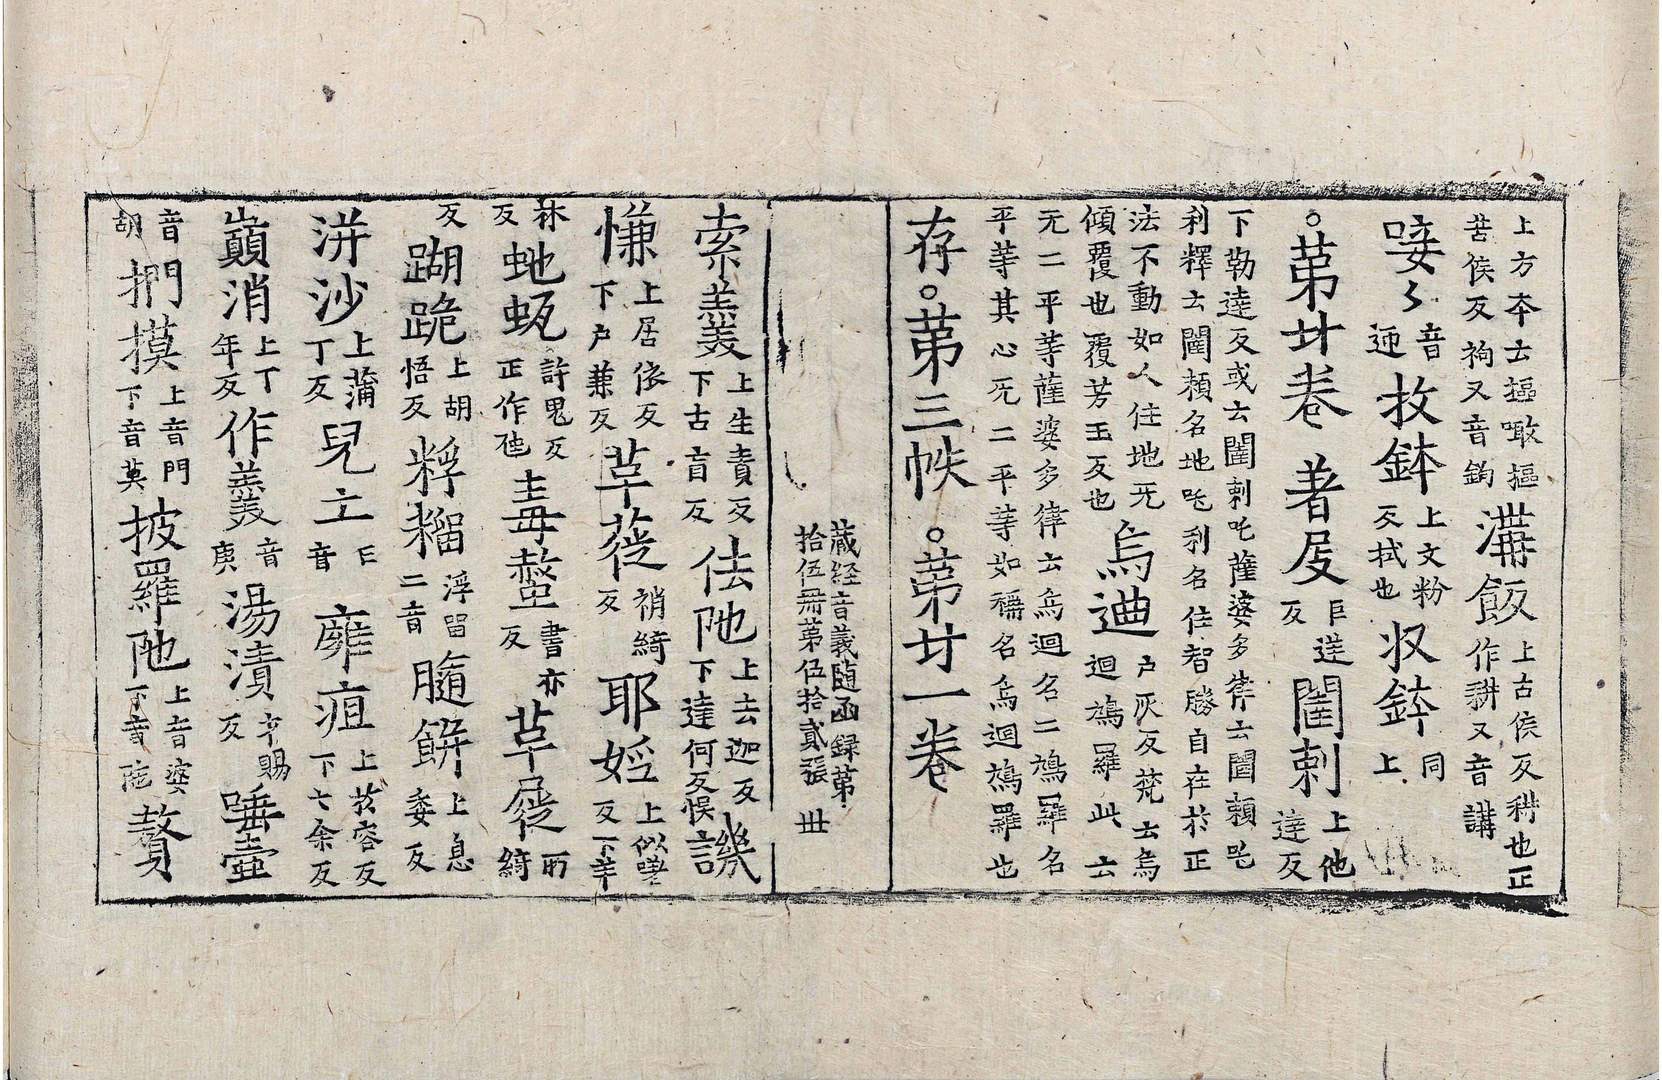 上方夲士摳噉摳
苦侯反袧又音鉤溝飯上古侯反耩也正
作耕又音講
唼〻音迊抆鉢上文粉反拭也収鉢同上
○苐廿卷 著屐巨逆反闥剌上他達反
下勒達反或云闥剌吒薩婆多律云闥賴吒
利釋云闥頼名地吒利名住智勝自在於正
法不動如人住地无
傾覆也覆芳玉反也烏迪戶灰反梵云烏迴鳩羅此云
无二平等薩婆多律云烏迴名二鳩羅名
平等其心无二平等如稱名烏迴鳩羅也
存○苐三帙○苐廿一卷
藏経音義随函録第
拾伍冊第伍拾貳張 丗
索羹上生責反下古盲反佉陁上去迦反下達何反悮譏
慊上居依反下戶兼反草蓰所綺反耶婬上似嗟反下羊
林反虵蚖許鬼反正作虺毒螫書亦反草屣所綺
反蹴跪上胡悟反粰𥻳浮留二音髓餅上息委反
洴沙上蒲丁反兒𠃊音巨雍疽上扵容反下七余反
巔消上丁年反作羹音庚湯漬才賜反唾壷
音胡捫摸上音門下音莫披羅陁上音婆下音陁贅